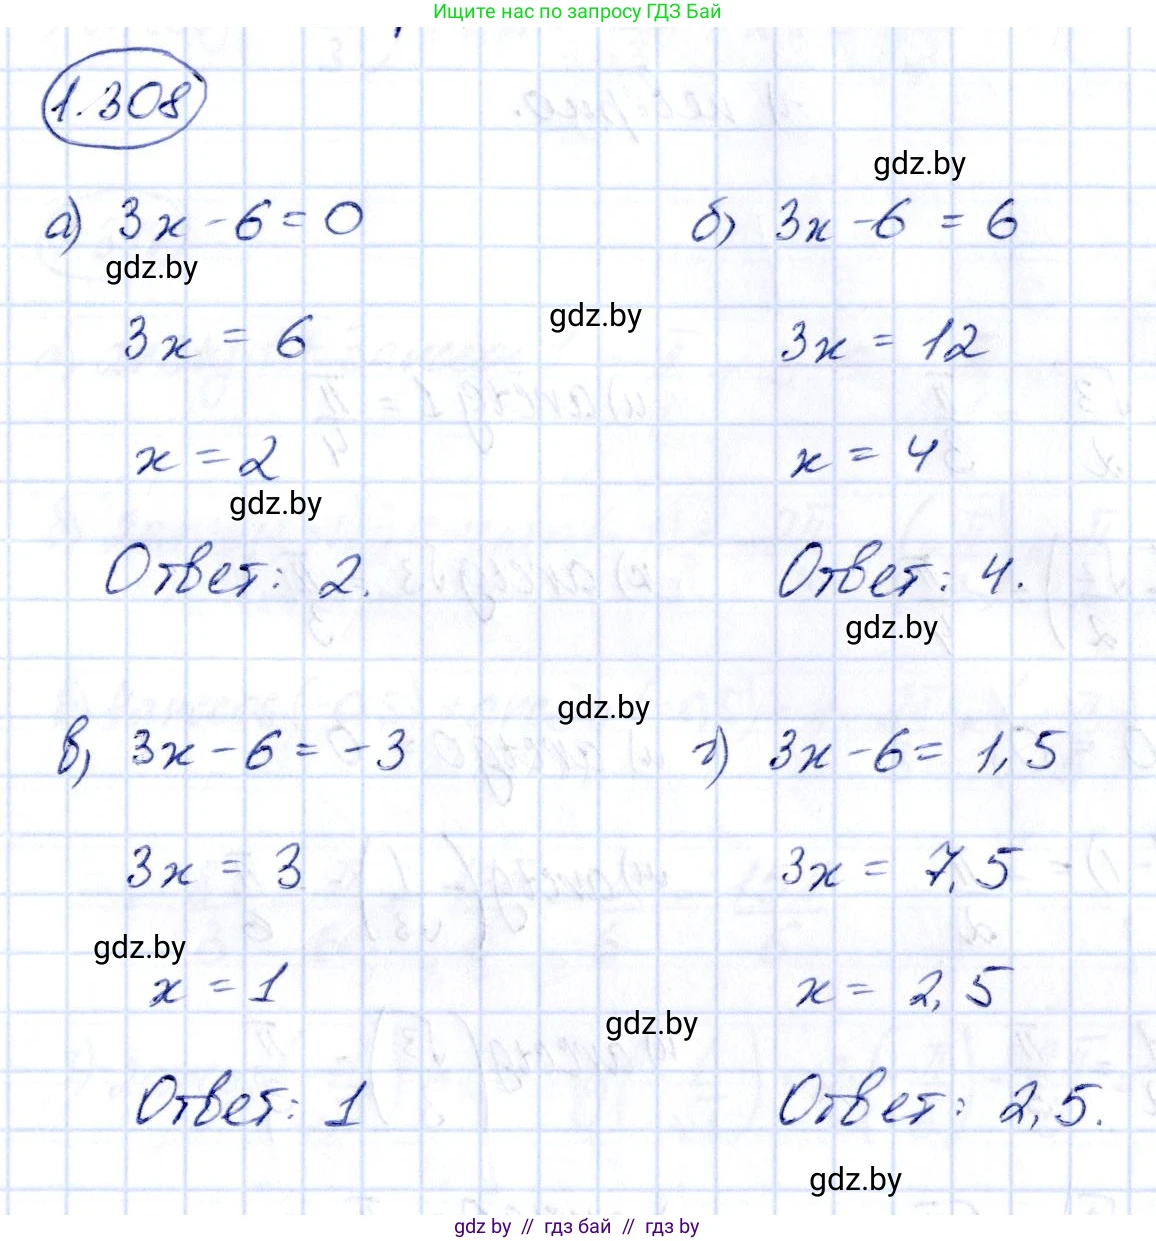 Ищите нас по запросу ГДЗ Бай
1.308
gdz.by
а) 3x - 6 = 0
б) 3x - 6 = 6
gdz.by
gdz.by
3x = 6
3x = 12
x = 2
x = 4
gdz.by
Ответ: 2.
Ответ: 4.
gdz.by
gdz.by
в) 3x - 6 = -3
г) 3x - 6 = 1,5
3x = 3
3x = 7,5
gdz.by
x = 1
x = 2,5
gdz.by
Ответ: 1
Ответ: 2,5.
gdz.by
gdz by // гдз бай // гдз by